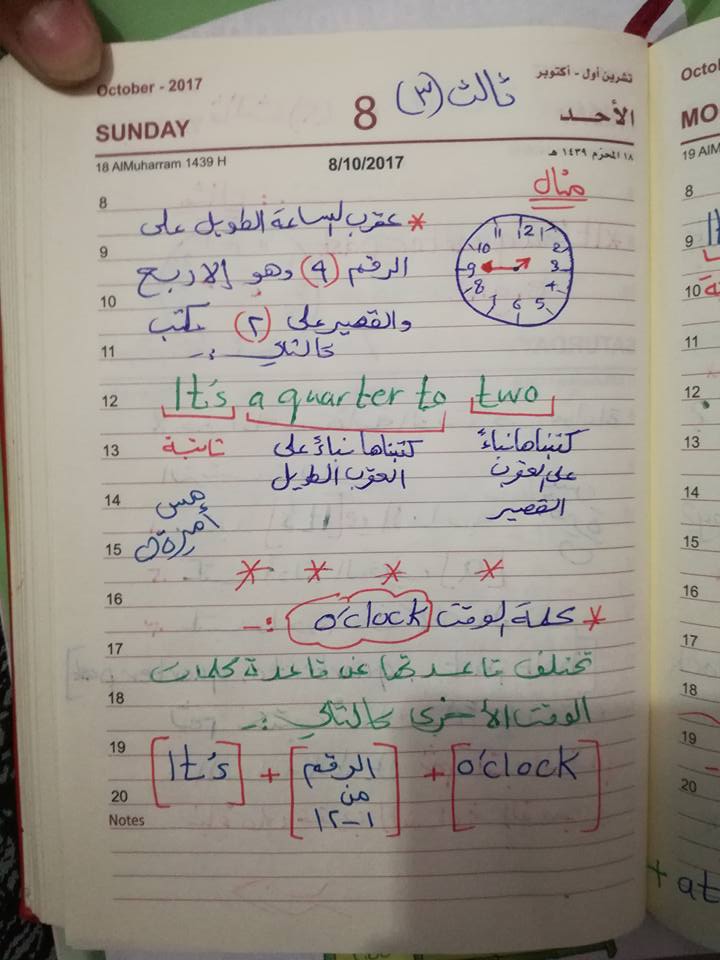 October - 2017
تشرين أول - أكتوبر
ثالث (٣)
SUNDAY
8
الأحد
18 AlMuharram 1439 H
8/10/2017
١٨ المحرّم ١٤٣٩ هـ
مثال
12 1 2 3 4 5 6 7 8 9 10 11
8
* عقرب الساعة الطويل على
9
الرقم (٩) وهو إلا ربع
10
والقصير على (٢) نكتب
11
كالتالي :-
12
It's a quarter to two
13
ثابتة
كتبناها نباءً على
العقرب الطويل
كتبناها نباءً
على العقرب
القصير
14
مس
15
16
* كلمة الوقت o'clock :-
17
تختلف قاعدتها عن قاعدة كلمات
18
الوقت الأخرى كالتالي :-
19
[It's] + [الرقم من ١-١٢] + [o'clock]
20
Notes
Octo
MO
19 Al
8
9
10
11
12
13
14
15
16
17
18
19
20
+ at